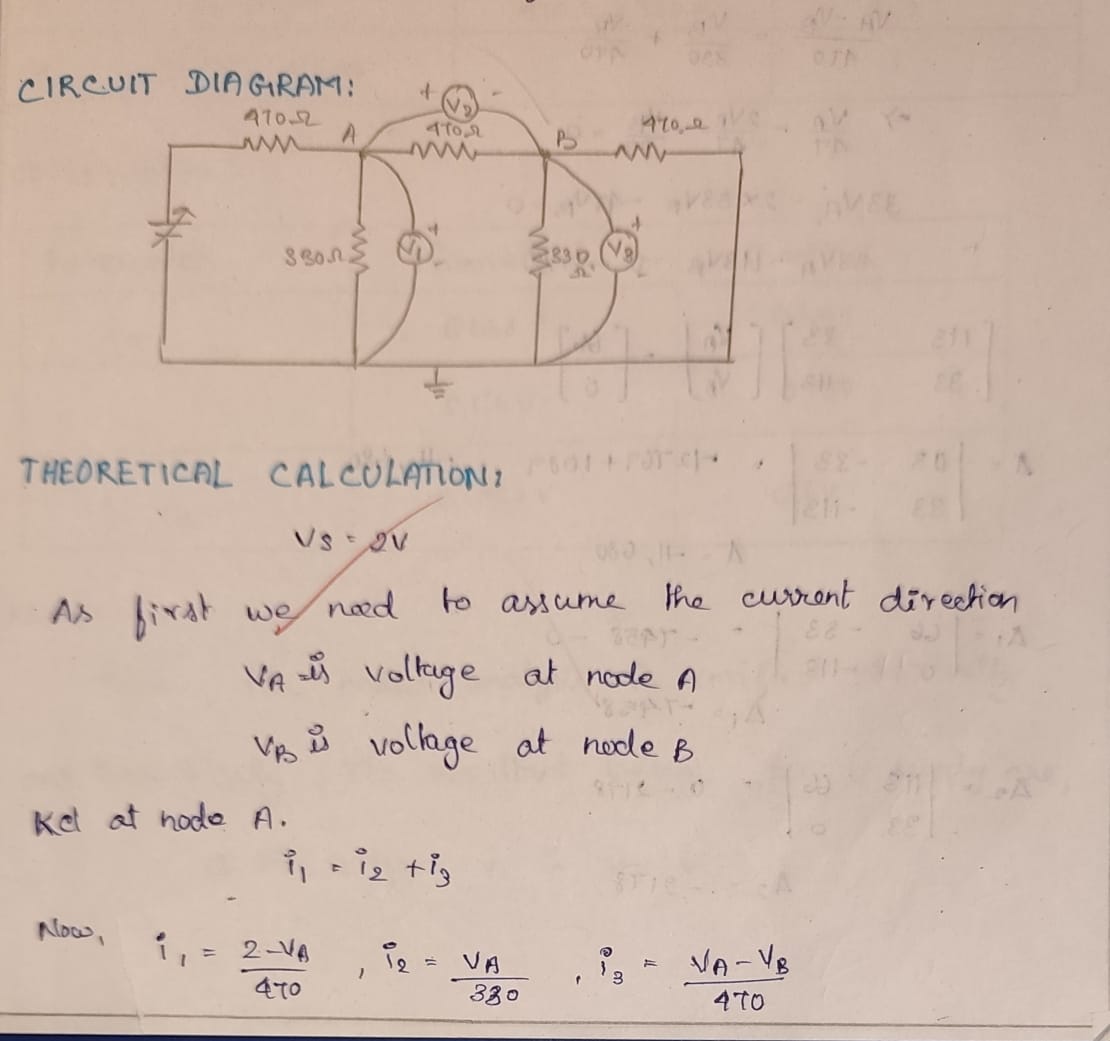 CIRCUIT DIAGRAM:
470Ω A + V2 - 470Ω B 470Ω
330Ω V1 + 330Ω V3 + -
THEORETICAL CALCULATION:
VS = 2V
As first we need to assume the current direction
VA is voltage at node A
VB is voltage at node B
Kcl at node A.
i1 = i2 + i3
Now, i1 = 2-VA/470, i2 = VA/330, i3 = VA-VB/470